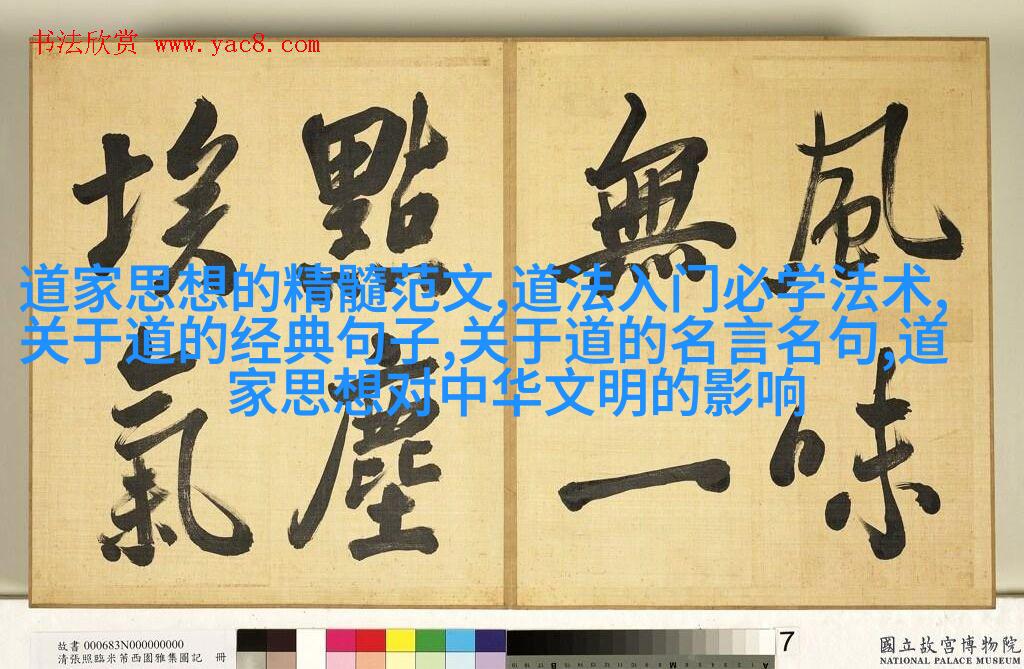 书法欣赏 www.yac8.com
風味
無一
點塵
埃氣
道家思想的精髓范文,道法入门必学法术,
关于道的经典句子,关于道的名言名句,道
家思想对中华文明的影响
故書 000683N000000000
清張照臨米芾西園雅集圖記 冊
7
國立故宮博物院
NATIONAL PALACE MUSEUM